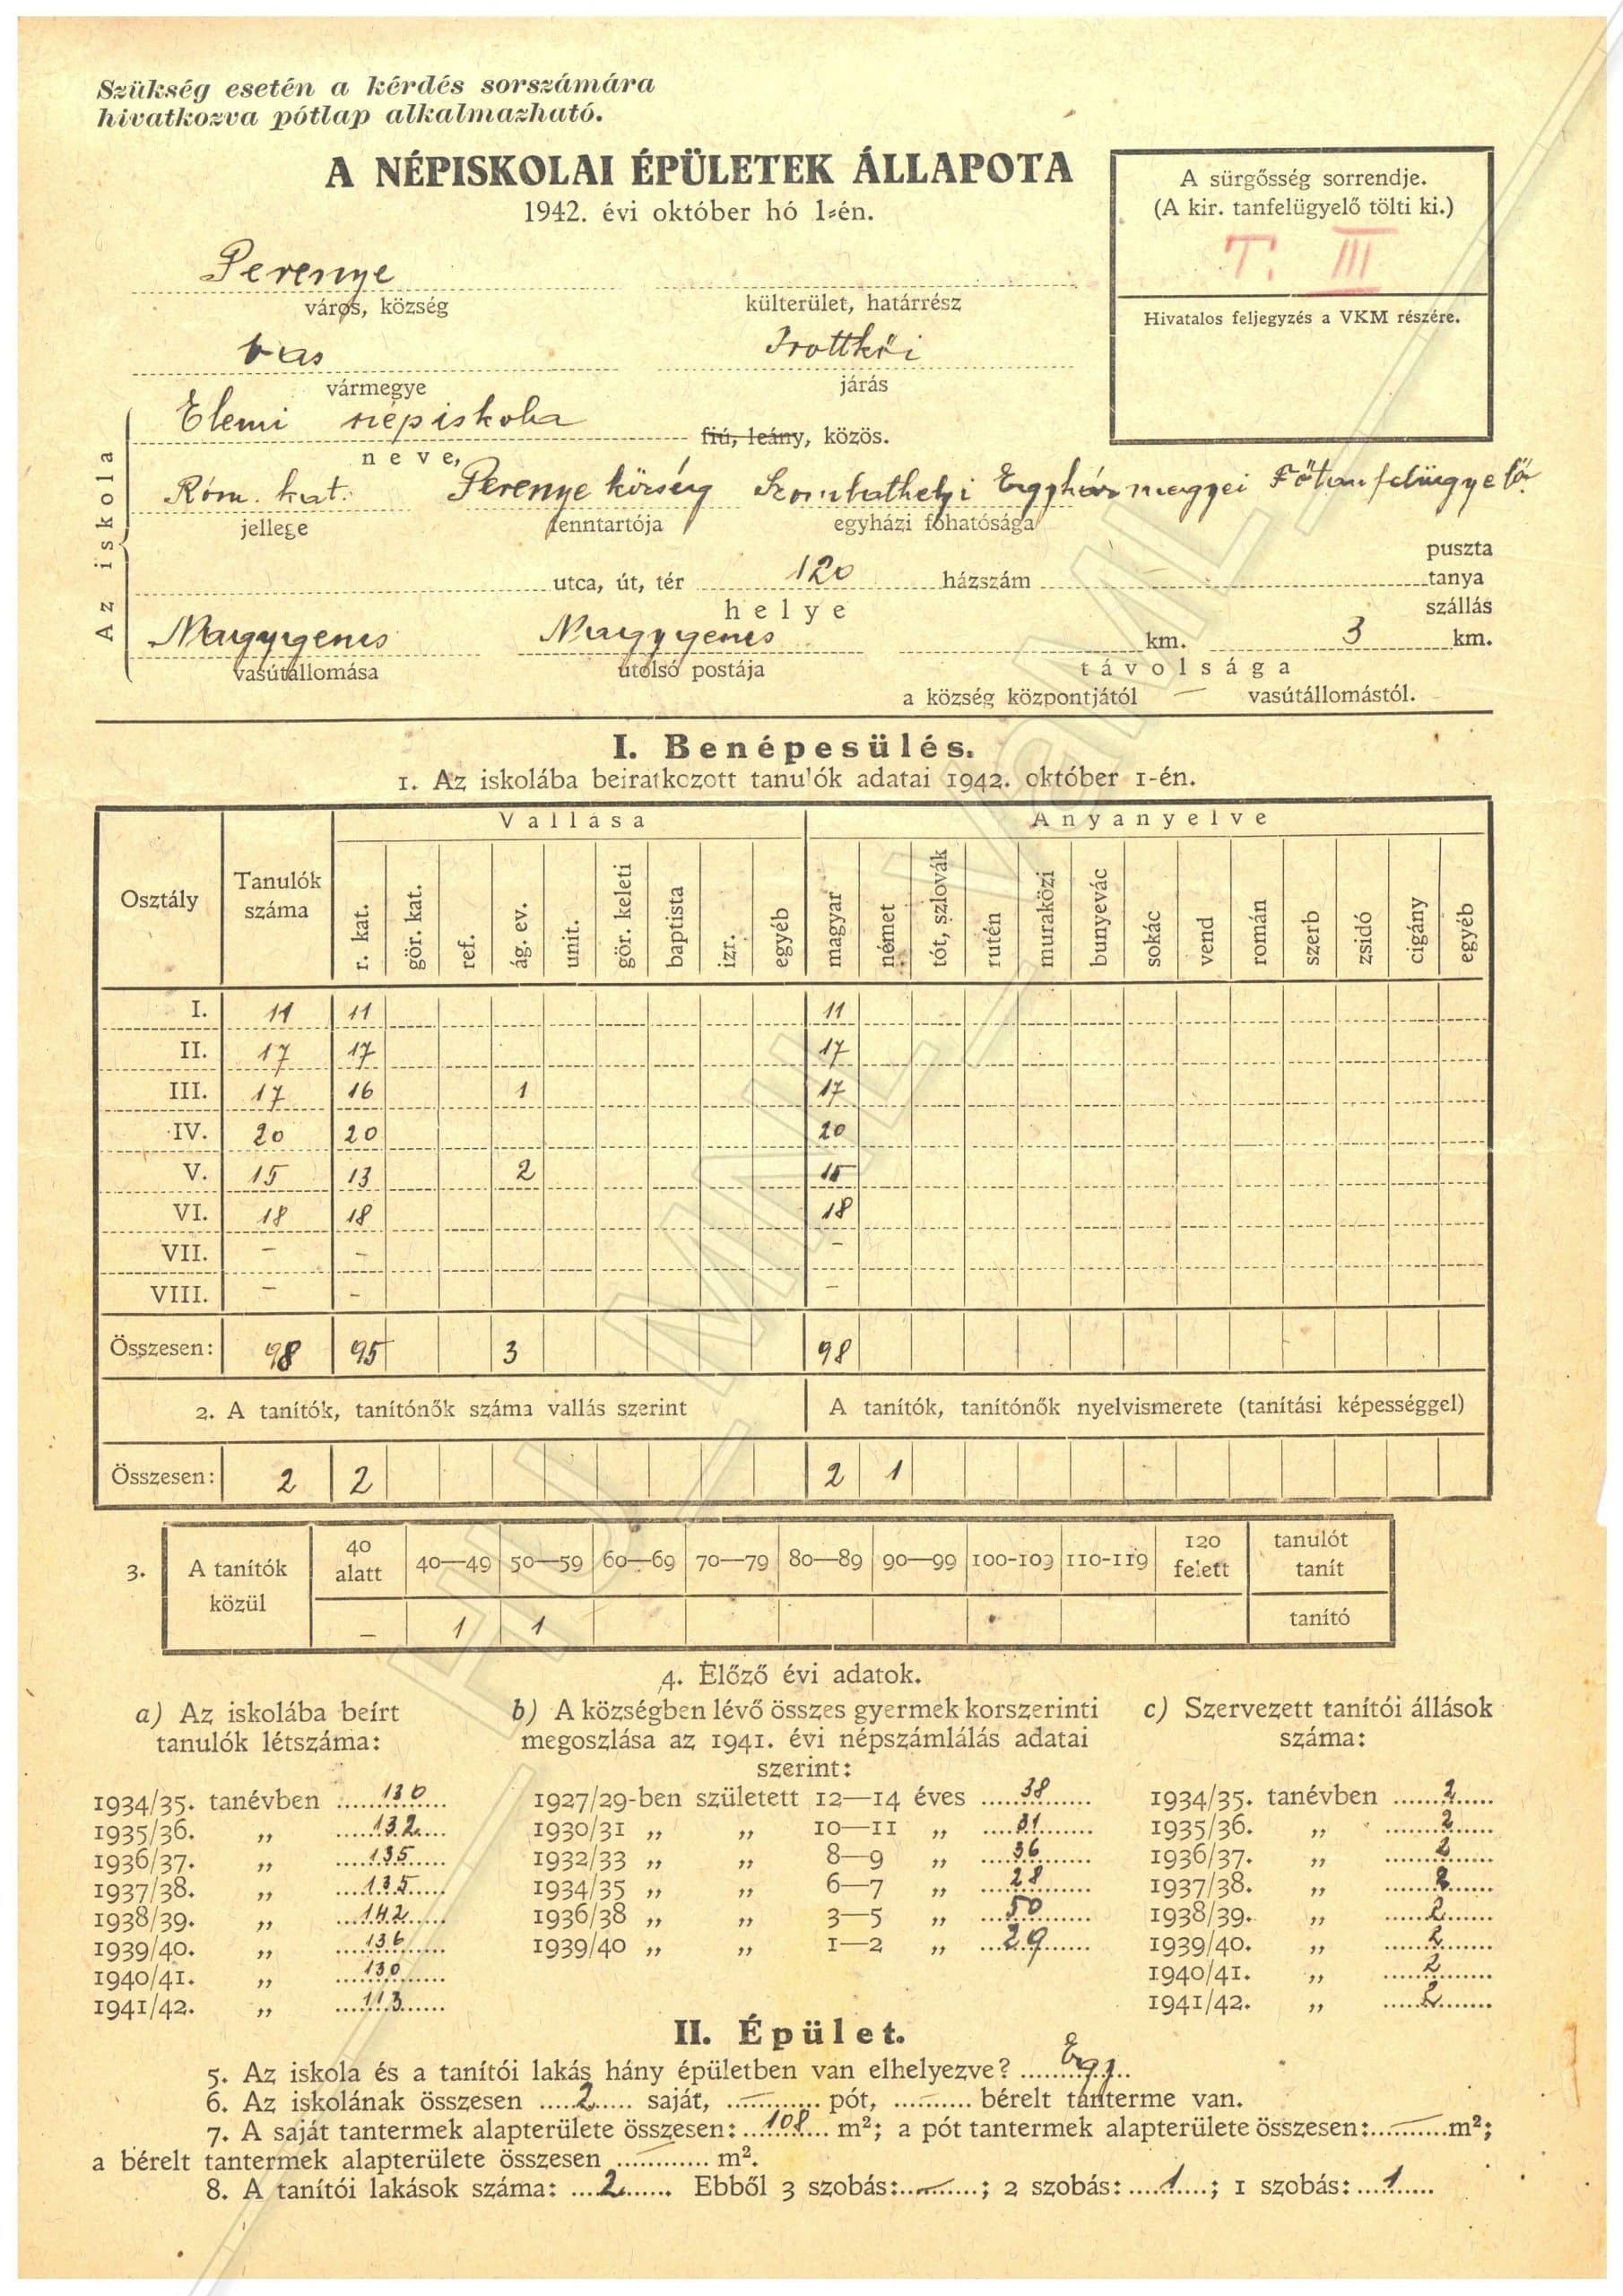 Szükség esetén a kérdés sorszámára
hivatkozva pótlap alkalmazható.
A NÉPISKOLAI ÉPÜLETEK ÁLLAPOTA
1942. évi október hó 1-én.
A sürgősség sorrendje.
(A kir. tanfelügyelő tölti ki.)
T. III
Hivatalos feljegyzés a VKM részére.
Perenye
város, község külterület, határrész
Vas Irottkői
vármegye járás
Az iskola
Elemi népiskola fiú, leány, közös.
neve,
Róm. kat. Perenye község Szombathelyi Egyházmegyei Főtanfelügyelő
jellege fenntartója egyházi főhatósága
puszta
utca, út, tér 120 házszám tanya
helye szállás
Nagygencs Nagygencs km. 3 km.
vasútállomása utolsó postája távolsága
a község központjától — vasútállomástól.
I. Benépesülés.
1. Az iskolába beiratkozott tanulók adatai 1942. október 1-én.
Vallása Anyanyelve
Osztály Tanulók száma r. kat. gör. kat. ref. ág. ev. unit. gör. keleti baptista izr. egyéb magyar német tót, szlovák rutén muraközi bunyevác sokác vend román szerb zsidó cigány egyéb
I. 11 11 11
II. 17 17 17
III. 17 16 1 17
IV. 20 20 20
V. 15 13 2 15
VI. 18 18 18
VII. – – –
VIII. – – –
Összesen: 98 95 3 98
2. A tanítók, tanítónők száma vallás szerint A tanítók, tanítónők nyelvismerete (tanítási képességgel)
Összesen: 2 2 2 1
3. A tanítók közül 40 alatt 40—49 50—59 60—69 70—79 80—89 90—99 100-109 110-119 120 felett tanulót tanít
– 1 1 tanító
4. Előző évi adatok.
a) Az iskolába beírt b) A községben lévő összes gyermek korszerinti c) Szervezett tanítói állások
tanulók létszáma: megoszlása az 1941. évi népszámlálás adatai száma:
szerint:
1934/35. tanévben 130 1927/29-ben született 12—14 éves 38 1934/35. tanévben 2
1935/36. „ 132 1930/31 „ „ 10—11 „ 31 1935/36. „ 2
1936/37. „ 135 1932/33 „ „ 8—9 „ 36 1936/37. „ 2
1937/38. „ 135 1934/35 „ „ 6—7 „ 28 1937/38. „ 2
1938/39. „ 142 1936/38 „ „ 3—5 „ 50 1938/39. „ 2
1939/40. „ 136 1939/40 „ „ 1—2 „ 29 1939/40. „ 2
1940/41. „ 130 1940/41. „ 2
1941/42. „ 113 1941/42. „ 2
II. Épület.
5. Az iskola és a tanítói lakás hány épületben van elhelyezve? Egy
6. Az iskolának összesen 2 saját, — pót, — bérelt tanterme van.
7. A saját tantermek alapterülete összesen: 108 m²; a pót tantermek alapterülete összesen: — m²;
a bérelt tantermek alapterülete összesen — m².
8. A tanítói lakások száma: 2 Ebből 3 szobás: —; 2 szobás: 1; 1 szobás: 1
HU_MNL_VaML